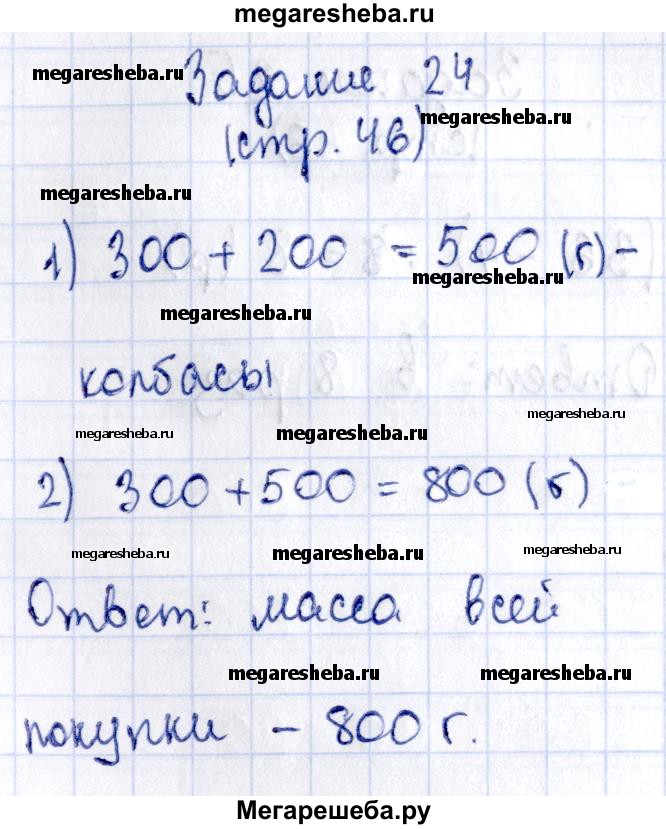 megaresheba.ru
megaresheba.ru
Задание 24
megaresheba.ru
(стр. 46)
megaresheba.ru
1) 300 + 200 = 500 (г) –
megaresheba.ru
megaresheba.ru
колбасы
megaresheba.ru
megaresheba.ru megaresheba.ru
2) 300 + 500 = 800 (г)
megaresheba.ru megaresheba.ru megaresheba.ru
Ответ: масса всей
megaresheba.ru megaresheba.ru
покупки – 800 г.
Мегарешеба.ру